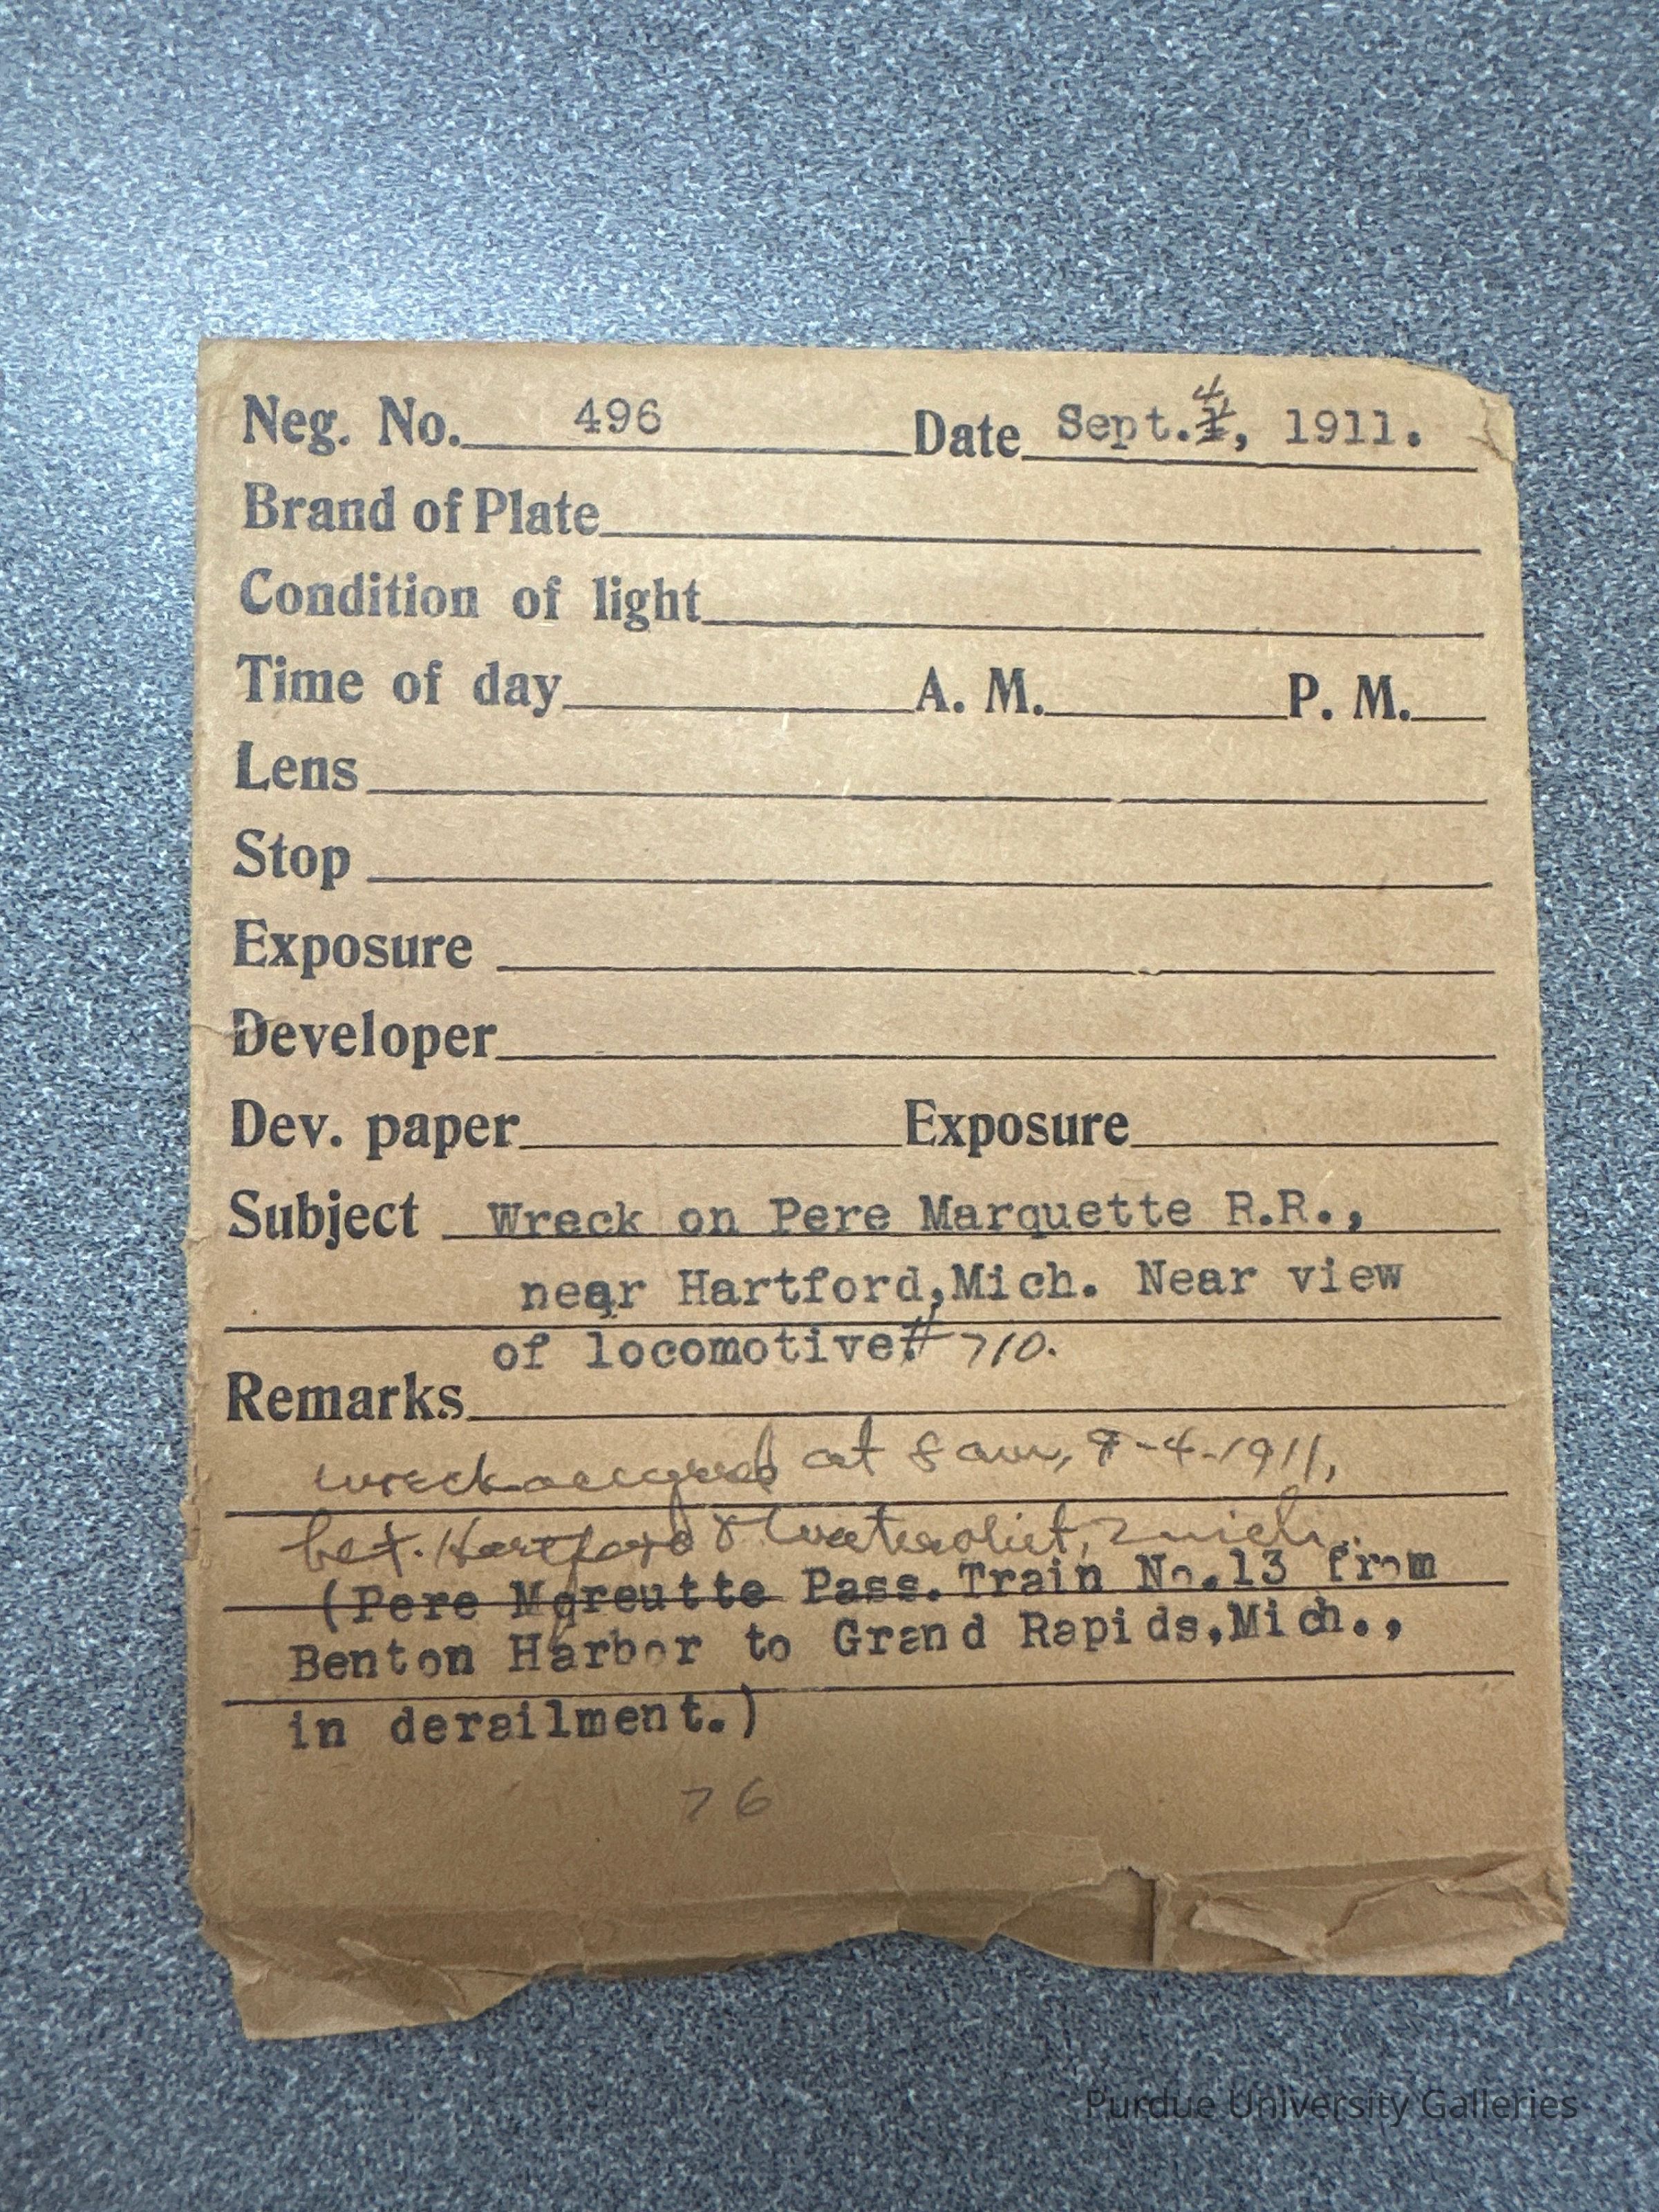 Neg. No. 496 Date Sept. 4, 1911.
Brand of Plate
Condition of light
Time of day A. M. P. M.
Lens
Stop
Exposure
Developer
Dev. paper Exposure
Subject Wreck on Pere Marquette R.R.,
near Hartford,Mich. Near view
of locomotive # 710.
Remarks
wreck occurred at 8 am, 9-4-1911,
bet. Hartford & Watervliet, Mich.
(Pere Mqreutte Pass. Train No.13 from
Benton Harbor to Grand Rapids,Mich.,
in derailment.)
76
Purdue University Galleries